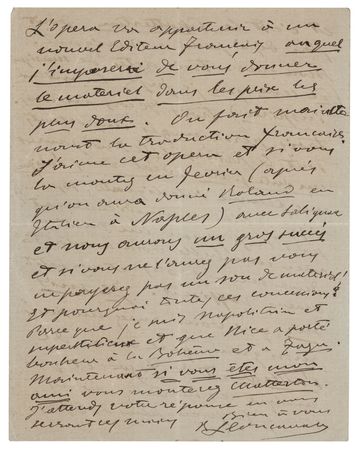 L'opera va appartenir à un
nouvel Editeur Francais auquel
j'imposerai de vous donner
le materiel dans les prix les
plus doux. On fait maintenant
la traduction francaise.
J'aime cet opera et si vous
la montez en fevrier (après
qu'on aura donné Roland en
Italien à Naples) avec
et nous aurons un gros succés
et si vous ne l'aurez pas vous
ne payerez pas un sou de materiel!
Et pourquoi toutes ces concessions?
Parce que je suis Napolitain et
superstitieux et que Nice a porté
bonheur à la Bohème et a Zaza.
Maintenant si vous etes mon
ami vous monterez Chatterton.
J'attends votre réponse en vous
serrant les mains
Bien à vous
RLeoncavallo